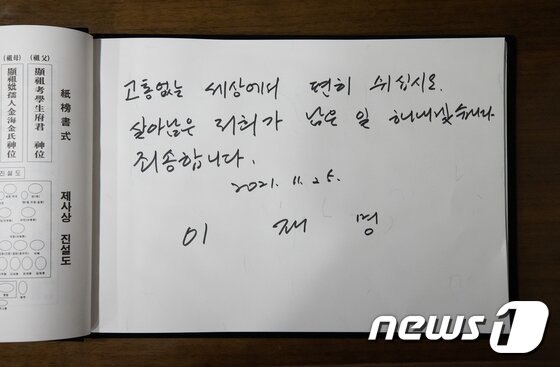 (祖母) (祖父)
顯祖妣孺人金海金氏 神位
顯祖考學生府君 神位
紙榜書式
진설도
제사상 진설도
고통없는 세상에서 편히 쉬십시오.
살아남은 저희가 남은 일 해내겠습니다
죄송합니다.
2021. 11. 25.
이 재 명
news1